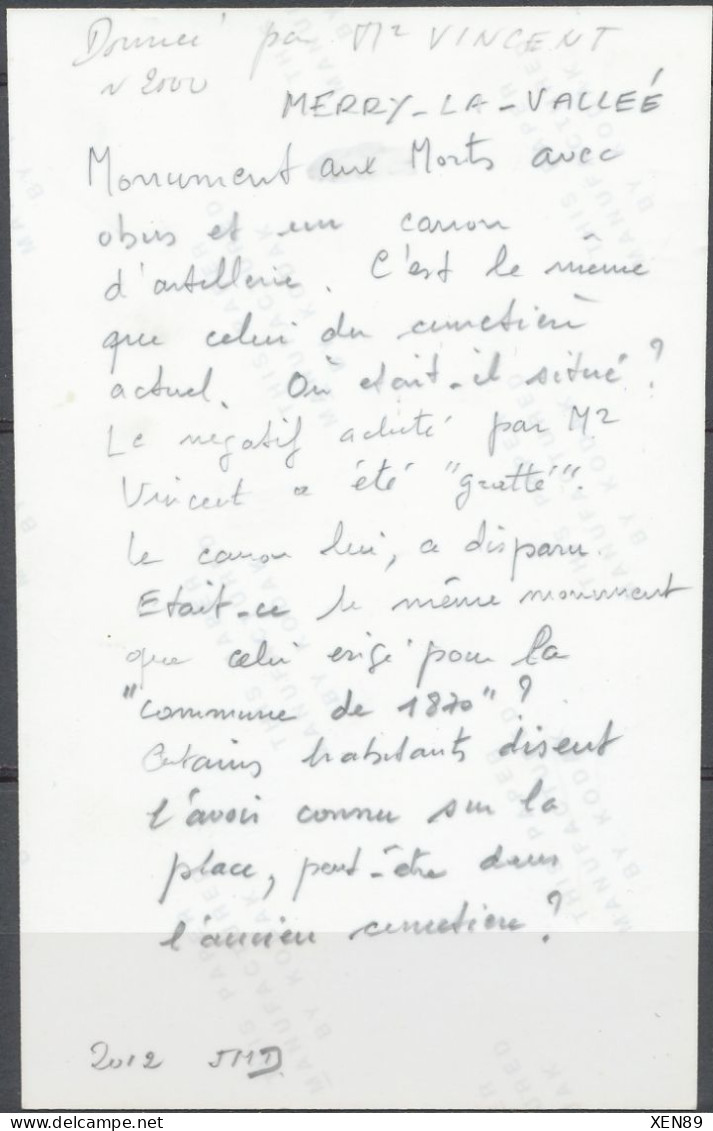 Donné par Mr VINCENT
N 2000
MERRY-LA-VALLEÉ
Monument aux Morts avec
obus et un canon
d'artillerie. C'est le même
que celui du cimetière
actuel. Où etait-il situé?
Le negatif acheté par Mr
Vincent a été "gratté".
Le canon lui, a disparu.
Etait-ce le même monument
que celui erigé pour la
"commune de 1870"?
Certains habitants disent
l'avoir connu sur la
place, peut-être dans
l'ancien cimetière?
2012 JMD
THIS PAPER
MANUFACTURED
BY KODAK
XEN89